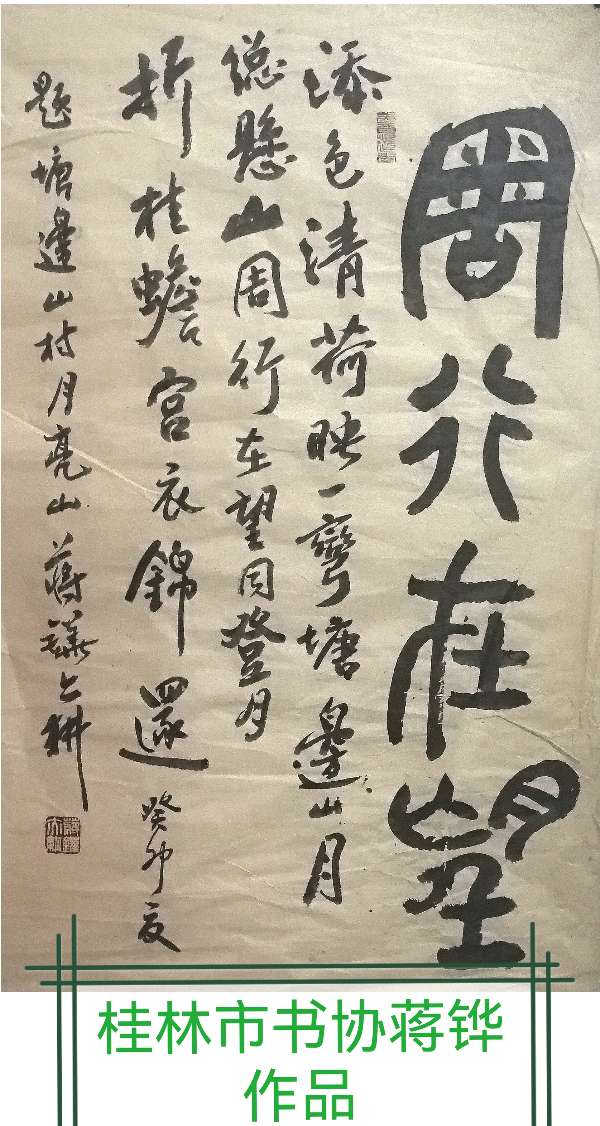 周行在望
添色清荷映一彎塘邊山月
總懸山周行在望同登月
折桂蟾宮衣錦還 癸卯夏
題塘邊山村月亮山 蔣鏵
桂林市书协蒋铧
作品